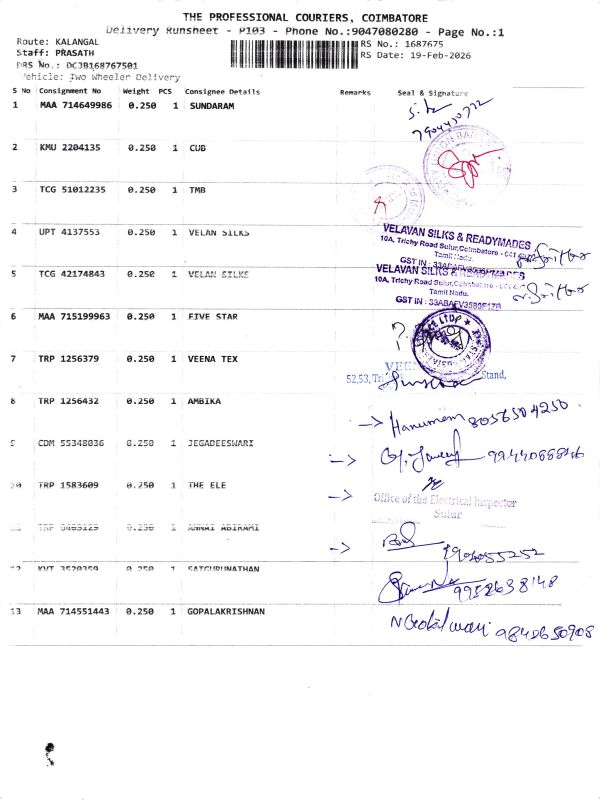 THE PROFESSIONAL COURIERS, COIMBATORE
Delivery Runsheet - P103 - Phone No.:9047080280 - Page No.:1
Route: KALANGAL
Staff: PRASATH
RS No.: 1687675
DRS No.: DCJB168767501
RS Date: 19-Feb-2026
Vehicle: Two Wheeler Delivery
S No Consignment No Weight PCS Consignee Details Remarks Seal & Signature
1 MAA 714649986 0.250 1 SUNDARAM
7904430772
2 KMU 2204135 0.250 1 CUB
3 TCG 51012235 0.250 1 TMB
4 UPT 4137553 0.250 1 VELAN SILKS
VELAVAN SILKS & READYMADES
10A, Trichy Road Sulur, Coimbatore - 641
Tamil Nadu.
GST IN : 33ABAFV3580F1ZB
5 TCG 42174843 0.250 1 VELAN SILKS
VELAVAN SILKS & READYMADES
10A, Trichy Road Sulur, Coimbatore - 641
Tamil Nadu.
GST IN : 33ABAFV3580F1ZB
6 MAA 715199963 0.250 1 FIVE STAR
7 TRP 1256379 0.250 1 VEENA TEX
VEE
52,53, Tri Stand,
8 TRP 1256432 0.250 1 AMBIKA
-> Hanumem 8056504250
9 CDM 55348036 0.250 1 JEGADEESWARI
-> 9944088846
10 TRP 1583609 0.250 1 THE ELE
-> Office of the Electrical Inspector
Sulur
11 TRP 0.250 1 ANNAI ABIRAMI
->
12 KVT 3520359 0.250 1 SATGURUNATHAN
9952638148
13 MAA 714551443 0.250 1 GOPALAKRISHNAN
9842650908